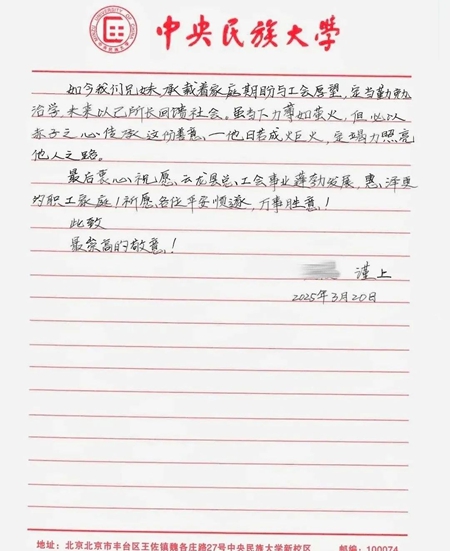 中央民族大学
如今我们兄妹承载着家庭期盼与工会厚望,定当勤勉
治学,未来以己所长回馈社会。虽当下力薄如萤火,但必以
赤子之心传承这份善意、一他日若成炬火,定竭力照亮
他人之路。
最后衷心祝愿、云龙县总、工会事业蓬勃发展,惠、泽更
多职工家庭!祈愿各位平安顺遂,万事胜意!
此致
最崇高的敬意!
谨上
2025年3月20日
地址:北京北京市丰台区王佐镇魏各庄路27号中央民族大学新校区 邮编:100074